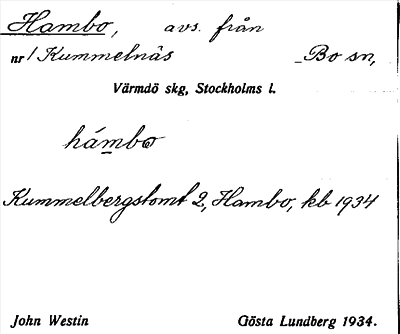 Hambo, avs. från
nr 1 Kummelnäs Bo sn,
Värmdö skg, Stockholms l.
hámbo
Kummelbergstomt 2, Hambo, kb 1934
John Westin Gösta Lundberg 1934.